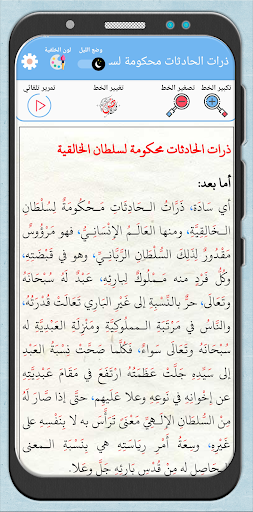 لون الخلفية
وضع الليل
ذرات الحادثات محكومة لس
تمرير تلقائي
تغيير الخط
تصغير الخط
تكبير الخط
ذرات الحادثات محكومة لسلطان الخالقية
أما بعد:
أي سَادَة، ذَرَّاتُ الـحَادِثَاتِ مَـحْكُومَةٌ لِسُلْطَانِ
الـخَالِقِيَّةِ، ومنها العَالَـمُ الإِنْسَانِيُّ، فهو مَرْؤُوسٌ
مَقْدُورٌ لِذَلِكَ السُّلْطَانِ الرَّبَّانِيِّ، وهو في قَبْضَتِهِ،
وكُلُّ فَرْدٍ منه مَـمْلُوكٌ لبارِئِهِ، عَبْدٌ لَهُ سُبْحَانَهُ
وتَعَالَى، حرٌّ بالنِّسْبَةِ إلى غَيْرِ البَارِي تَعَالَتْ قُدْرَتُهُ،
والنَّاسُ في مَرْتَبَةِ الـمملُوكِيَّةِ ومَنْزِلَةِ العَبْدِيَّةِ له
سُبْحَانَهُ وتَعَالَى سَواءٌ، فَكُلَّمَا صَحَّتْ نِسْبَةُ العَبْدِ
إلى سَيِّدِهِ جَلَّتْ عَظَمَتُهُ ارْتَفَعَ في مَقَامِ عَبْدِيَّتِهِ
عن إِخْوَانِهِ في نَوعِهِ وعلا عليهم، حتَّى إذا صَارَ لَهُ
مِنَ السُّلْطَانِ الإِلَـهِيِّ مَعْنًى تَرَأَّسَ به لا بِنَفْسِهِ على
غَيْرِهِ، وسِعَةُ أَمْرِ رِيَاسَتِهِ هي بِنِسْبَةِ الـمعنى
الـحَاصِلِ له مِن قُدْسِ بَارِئِهِ جَلَّ وعَلا.